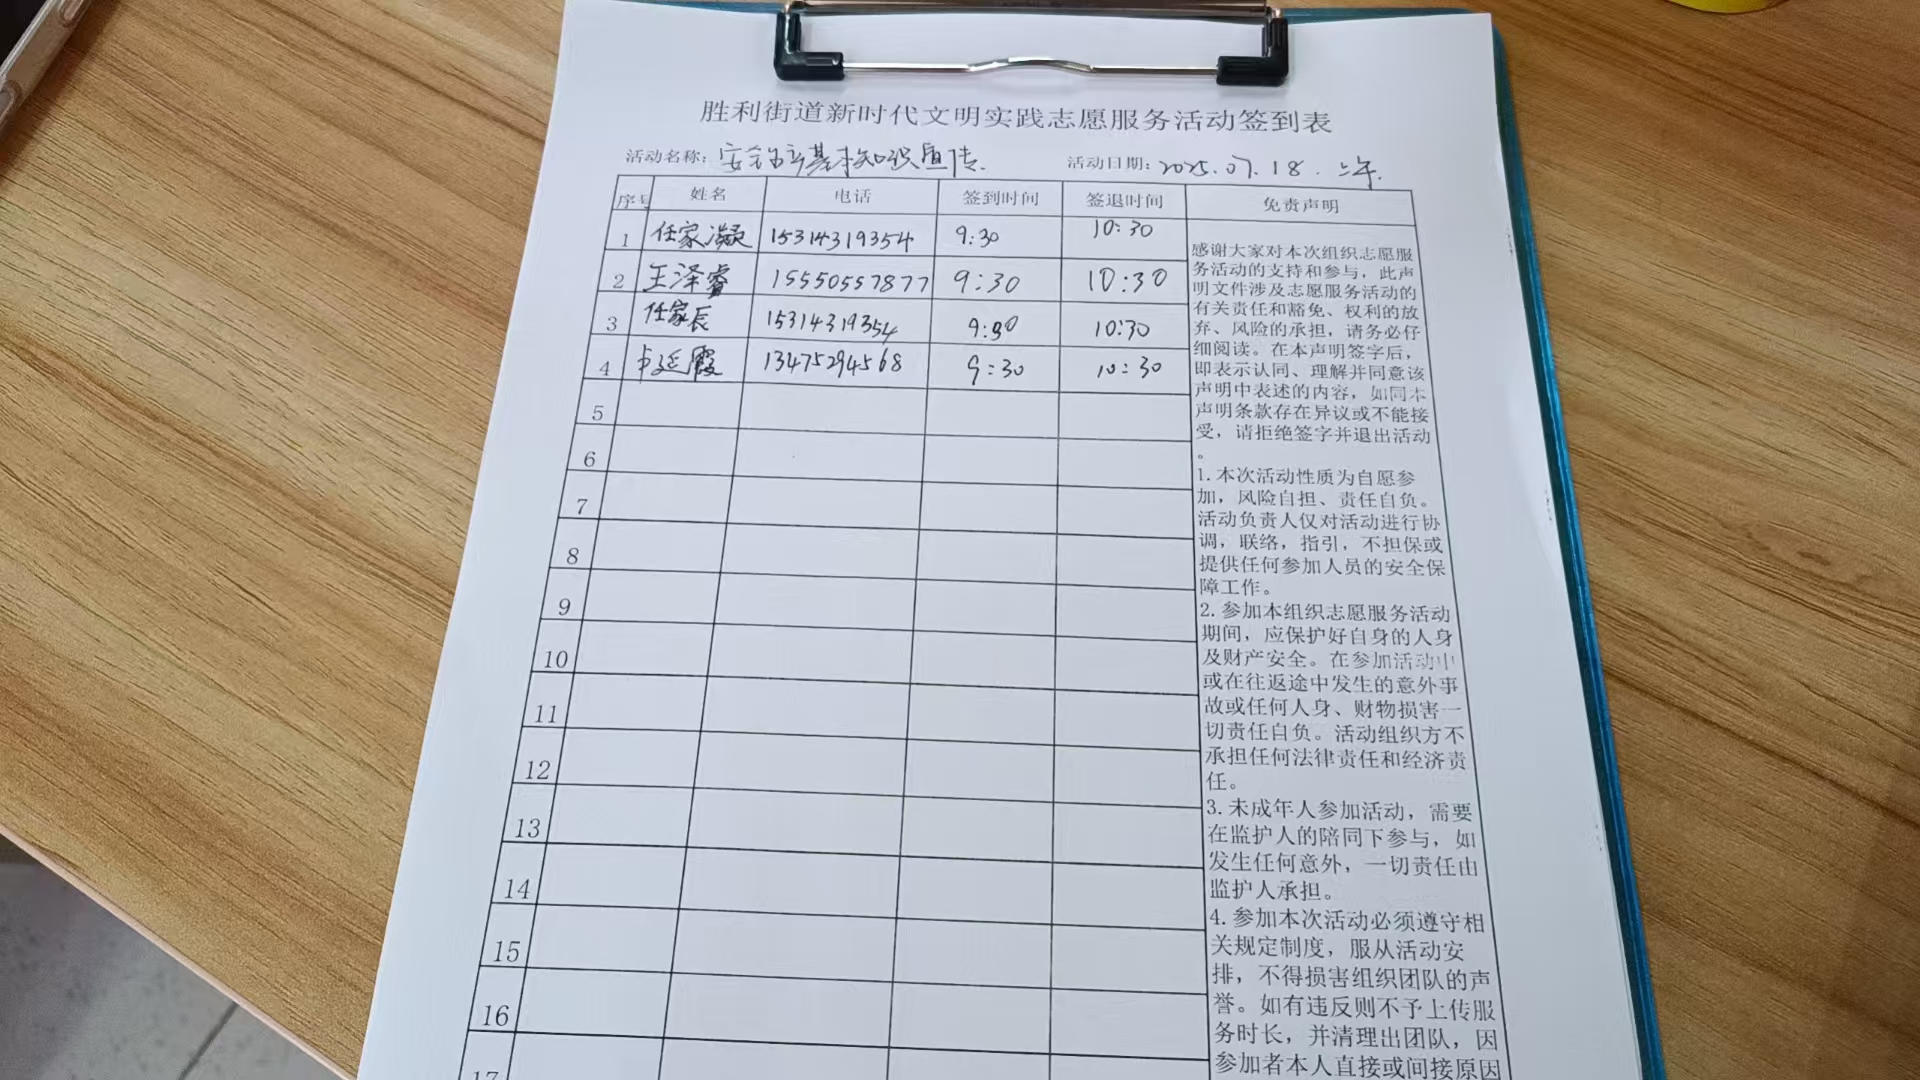 胜利街道新时代文明实践志愿服务活动签到表
活动名称: 基本知识宣传. 活动日期: 2025.07.18. 上午.
序号 姓名 电话 签到时间 签退时间 免责声明
1 任家凝 15314319354 9:30 10:30
2 王泽睿 15550557877 9:30 10:30
3 任家辰 15314319354 9:30 10:30
4 廷霞 13475294568 9:30 10:30
5
6
7
8
9
10
11
12
13
14
15
16
17
感谢大家对本次组织志愿服
务活动的支持和参与，此声
明文件涉及志愿服务活动的
有关责任和豁免、权利的放
弃、风险的承担，请务必仔
细阅读。在本声明签字后，
即表示认同、理解并同意该
声明中表述的内容，如同本
声明条款存在异议或不能接
受，请拒绝签字并退出活动
。
1.本次活动性质为自愿参
加，风险自担、责任自负。
活动负责人仅对活动进行协
调，联络，指引，不担保或
提供任何参加人员的安全保
障工作。
2.参加本组织志愿服务活动
期间，应保护好自身的人身
及财产安全。在参加活动中
或在往返途中发生的意外事
故或任何人身、财物损害一
切责任自负。活动组织方不
承担任何法律责任和经济责
任。
3.未成年人参加活动，需要
在监护人的陪同下参与，如
发生任何意外，一切责任由
监护人承担。
4.参加本次活动必须遵守相
关规定制度，服从活动安
排，不得损害组织团队的声
誉。如有违反则不予上传服
务时长，并清理出团队，因
参加者本人直接或间接原因